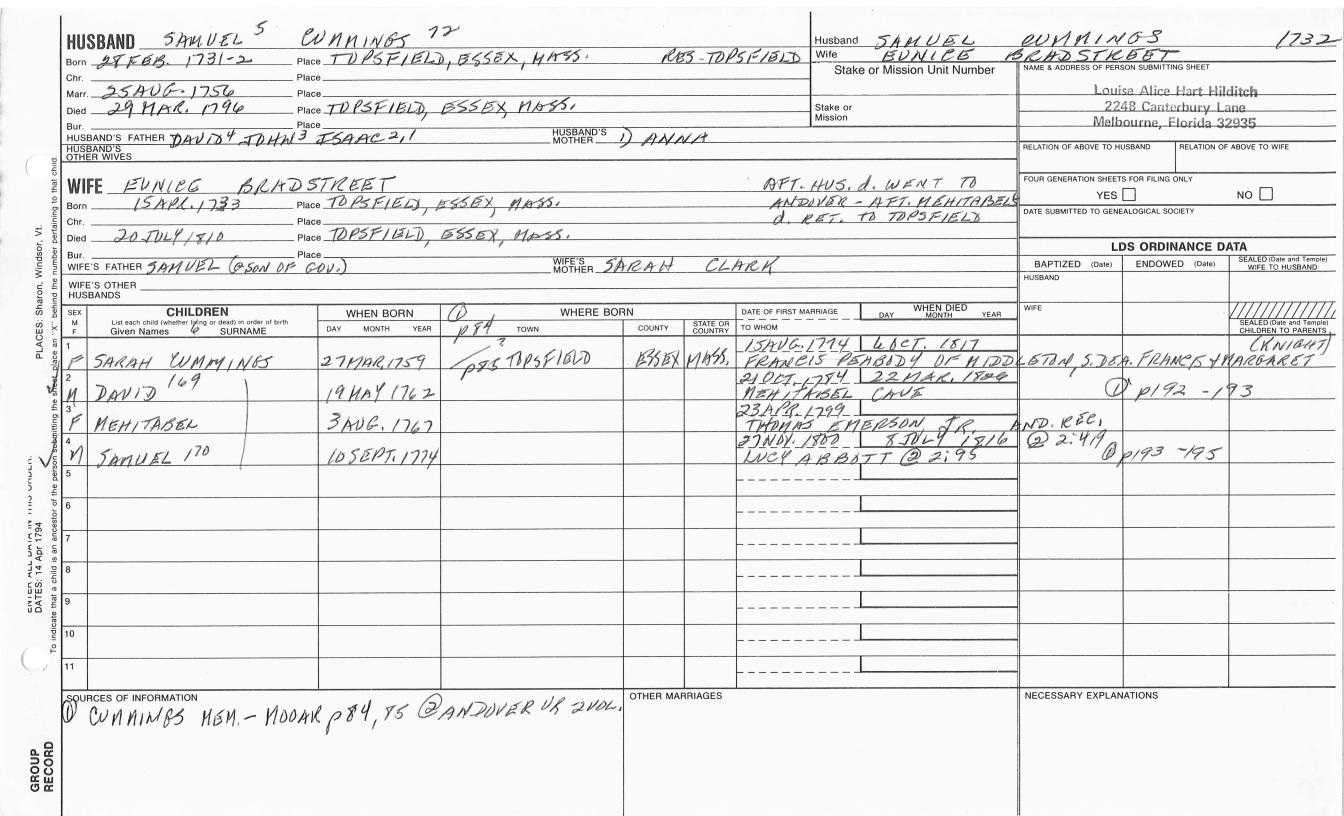 HUSBAND SAMUEL 5 CUMMINGS 72
Born 28 FEB. 1731-2 Place TOPSFIELD, ESSEX, MASS. RES-TOPSFIELD
Chr. Place
Marr. 25 AUG. 1756 Place
Died 29 MAR. 1796 Place TOPSFIELD, ESSEX MASS.
Bur. Place
HUSBAND'S FATHER DAVID4 JOHN3 ISAAC2,1 HUSBAND'S MOTHER 1) ANNA
HUSBAND'S OTHER WIVES
Husband SAMUEL CUMMINGS 1732
Wife EUNICE BRADSTREET
Stake or Mission Unit Number
Stake or Mission
NAME & ADDRESS OF PERSON SUBMITTING SHEET
Louise Alice Hart Hilditch
2248 Canterbury Lane
Melbourne, Florida 32935
RELATION OF ABOVE TO HUSBAND RELATION OF ABOVE TO WIFE
FOUR GENERATION SHEETS FOR FILING ONLY
YES NO
DATE SUBMITTED TO GENEALOGICAL SOCIETY
WIFE EUNICE BRADSTREET AFT. HUS. d. WENT TO
Born 15 APR. 1733 Place TOPSFIELD, ESSEX, MASS. ANDOVER - AFT. MEHITABELS
Chr. Place d. RET. TO TOPSFIELD
Died 20 JULY 1810 Place TOPSFIELD, ESSEX, MASS.
Bur. Place
WIFE'S FATHER SAMUEL (GSON OF GOV.) WIFE'S MOTHER SARAH CLARK
WIFE'S OTHER HUSBANDS
LDS ORDINANCE DATA
BAPTIZED (Date) ENDOWED (Date) SEALED (Date and Temple) WIFE TO HUSBAND
HUSBAND
WIFE
SEALED (Date and Temple) CHILDREN TO PARENTS
SEX M F CHILDREN WHEN BORN ① WHERE BORN DATE OF FIRST MARRIAGE WHEN DIED
List each child (whether living or dead) in order of birth
Given Names SURNAME DAY MONTH YEAR p84 TOWN COUNTY STATE OR COUNTRY TO WHOM DAY MONTH YEAR
1 15 AUG. 1774 6 OCT. 1817 (KNIGHT)
F SARAH CUMMINGS 27 MAR. 1759 p85 ? TOPSFIELD ESSEX MASS. FRANCIS PEABODY OF MIDDLETON, S. DEA. FRANCIS & MARGARET
2 21 OCT. 1784 22 MAR. 1826
M DAVID 169 19 MAY 1762 MEHITABEL CAVE ① p192 -193
3 23 APR. 1799
F MEHITABEL 3 AUG. 1767 THOMAS EMERSON JR. AND. REC.
4 27 NOV. 1800 8 JULY 1816 ② 2:419
M SAMUEL 170 10 SEPT. 1774 LUCY ABBOTT ② 2:95 ① p193 -195
5
6
7
8
9
10
11
SOURCES OF INFORMATION OTHER MARRIAGES NECESSARY EXPLANATIONS
① CUMMINGS MEM. - MOOAR p84, 85 ② ANDOVER VR 2 VOL.
PLACES: Sharon, Windsor, Vt.
ENTER ALL DATA IN THIS ORDER:
DATES: 14 Apr 1794
To indicate that a child is an ancestor of the person submitting the sheet, place an "X" behind the number pertaining to that child.
GROUP RECORD